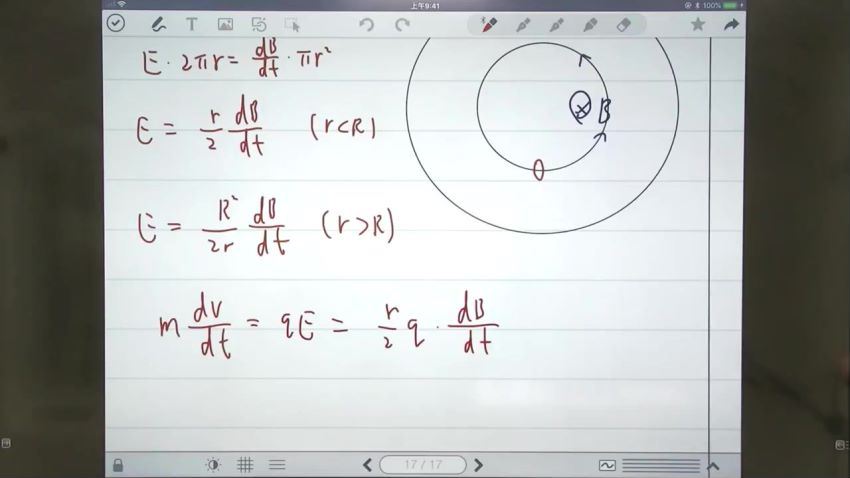 上午9:41
100%
T
E · 2πr = dB/dt · πr²
E = r/2 dB/dt (r<R)
B
E = R²/2r dB/dt (r>R)
m dv/dt = qE = r/2 q · dB/dt
17 / 17